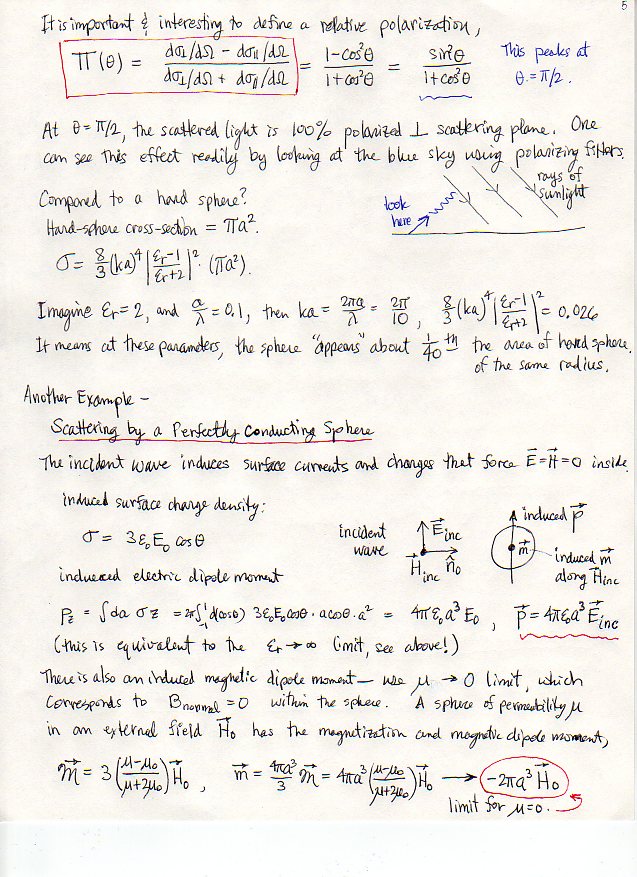 5
It is important & interesting to define a relative polarization,
Π(θ) = (dσ⊥/dΩ − dσ∥/dΩ)/(dσ⊥/dΩ + dσ∥/dΩ) = (1−cos²θ)/(1+cos²θ) = sin²θ/(1+cos²θ) This peaks at θ = π/2.
At θ = π/2, the scattered light is 100% polarized ⊥ scattering plane. One
can see this effect readily by looking at the blue sky using polarizing filters.
rays of sunlight
look here
Compared to a hard sphere?
Hard-sphere cross-section = πa².
σ = 8/3 (ka)⁴ |(εr−1)/(εr+2)|² · (πa²).
Imagine εr = 2, and a/λ = 0.1, then ka = 2πa/λ = 2π/10, 8/3 (ka)⁴ |(εr−1)/(εr+2)|² = 0.026
It means at these parameters, the sphere "appears" about 1/40 th the area of hard sphere.
of the same radius.
Another Example -
Scattering by a Perfectly Conducting Sphere
The incident wave induces surface currents and charges that force E⃗ = H⃗ = 0 inside.
induced surface charge density:
σ = 3ε₀E₀ cosθ
incident wave
E⃗inc
H⃗inc
n̂₀
induced p⃗
m⃗
induced m⃗ along H⃗inc
induced electric dipole moment
Pz = ∫da σz = 2π∫₋₁¹ d(cosθ) 3ε₀E₀cosθ · a cosθ · a² = 4πε₀a³E₀, p⃗ = 4πε₀a³E⃗inc
(this is equivalent to the εr → ∞ limit, see above!)
There is also an induced magnetic dipole moment — use μ → 0 limit, which
corresponds to Bnormal = 0 within the sphere. A sphere of permeability μ
in an external field H⃗₀ has the magnetization and magnetic dipole moment,
M⃗ = 3((μ−μ₀)/(μ+2μ₀))H⃗₀, m⃗ = 4πa³/3 M⃗ = 4πa³((μ−μ₀)/(μ+2μ₀))H⃗₀ → −2πa³H⃗₀
limit for μ=0.